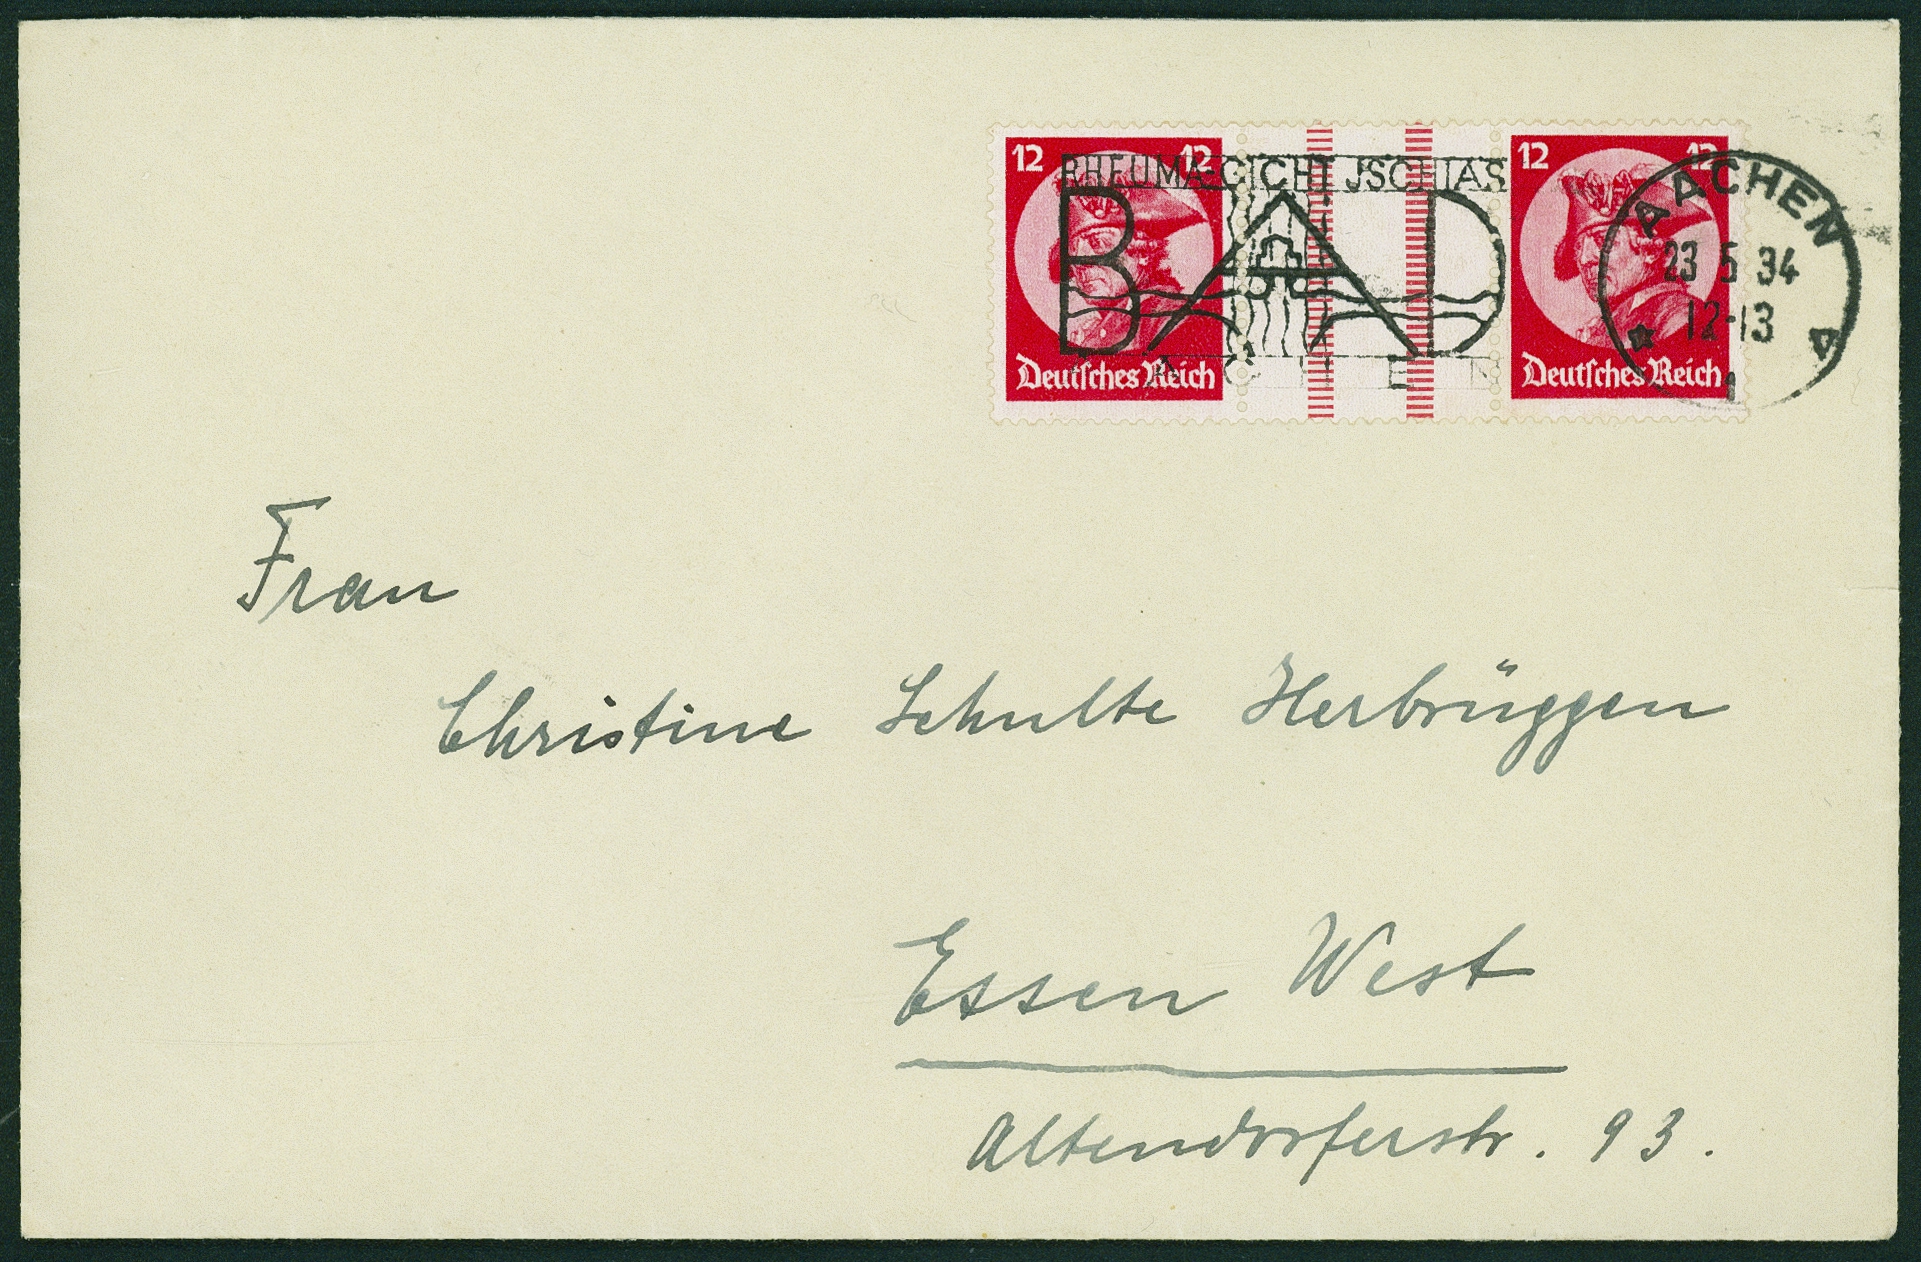 12 12 12 12
RHEUMA-GICHT JSCHIAS
BAD
AACHEN
Deutsches Reich Deutsches Reich
AACHEN
23 5 34
12-13
1
Frau
Christine Schulte Herbrüggen
Essen West
Altendorferstr. 93.